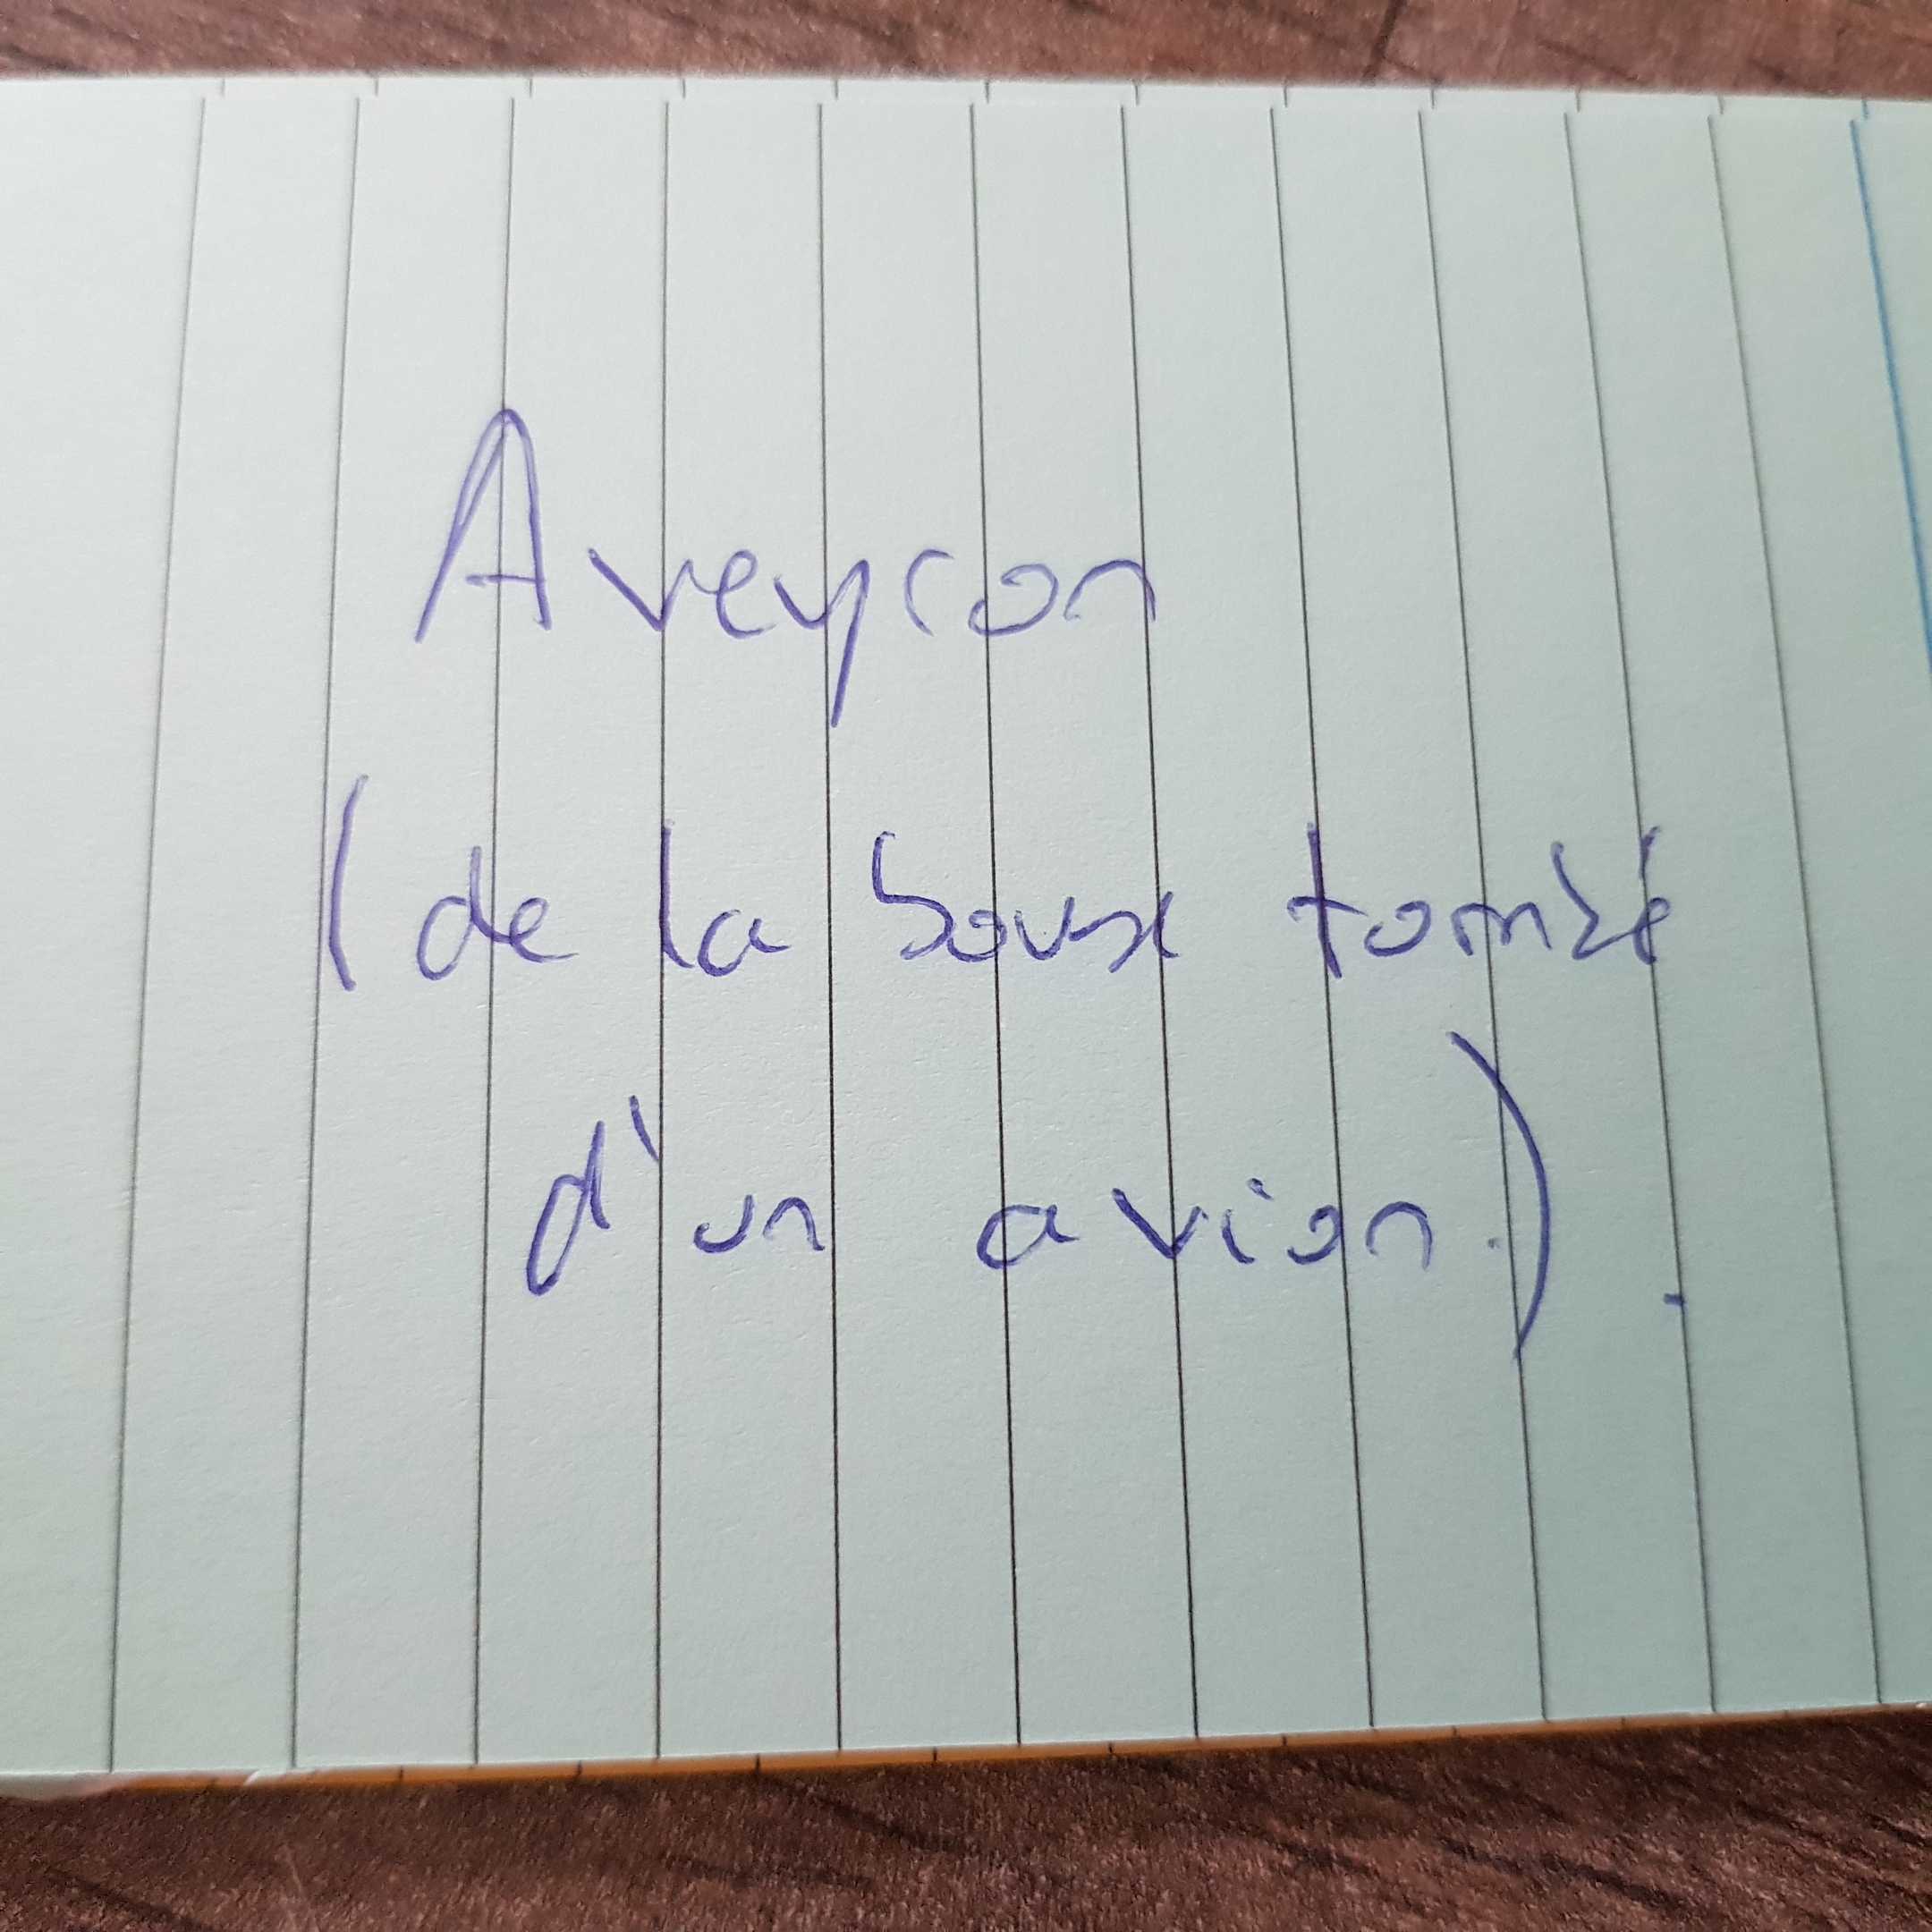 Aveyron
(de la bouse tombé
d'un avion).